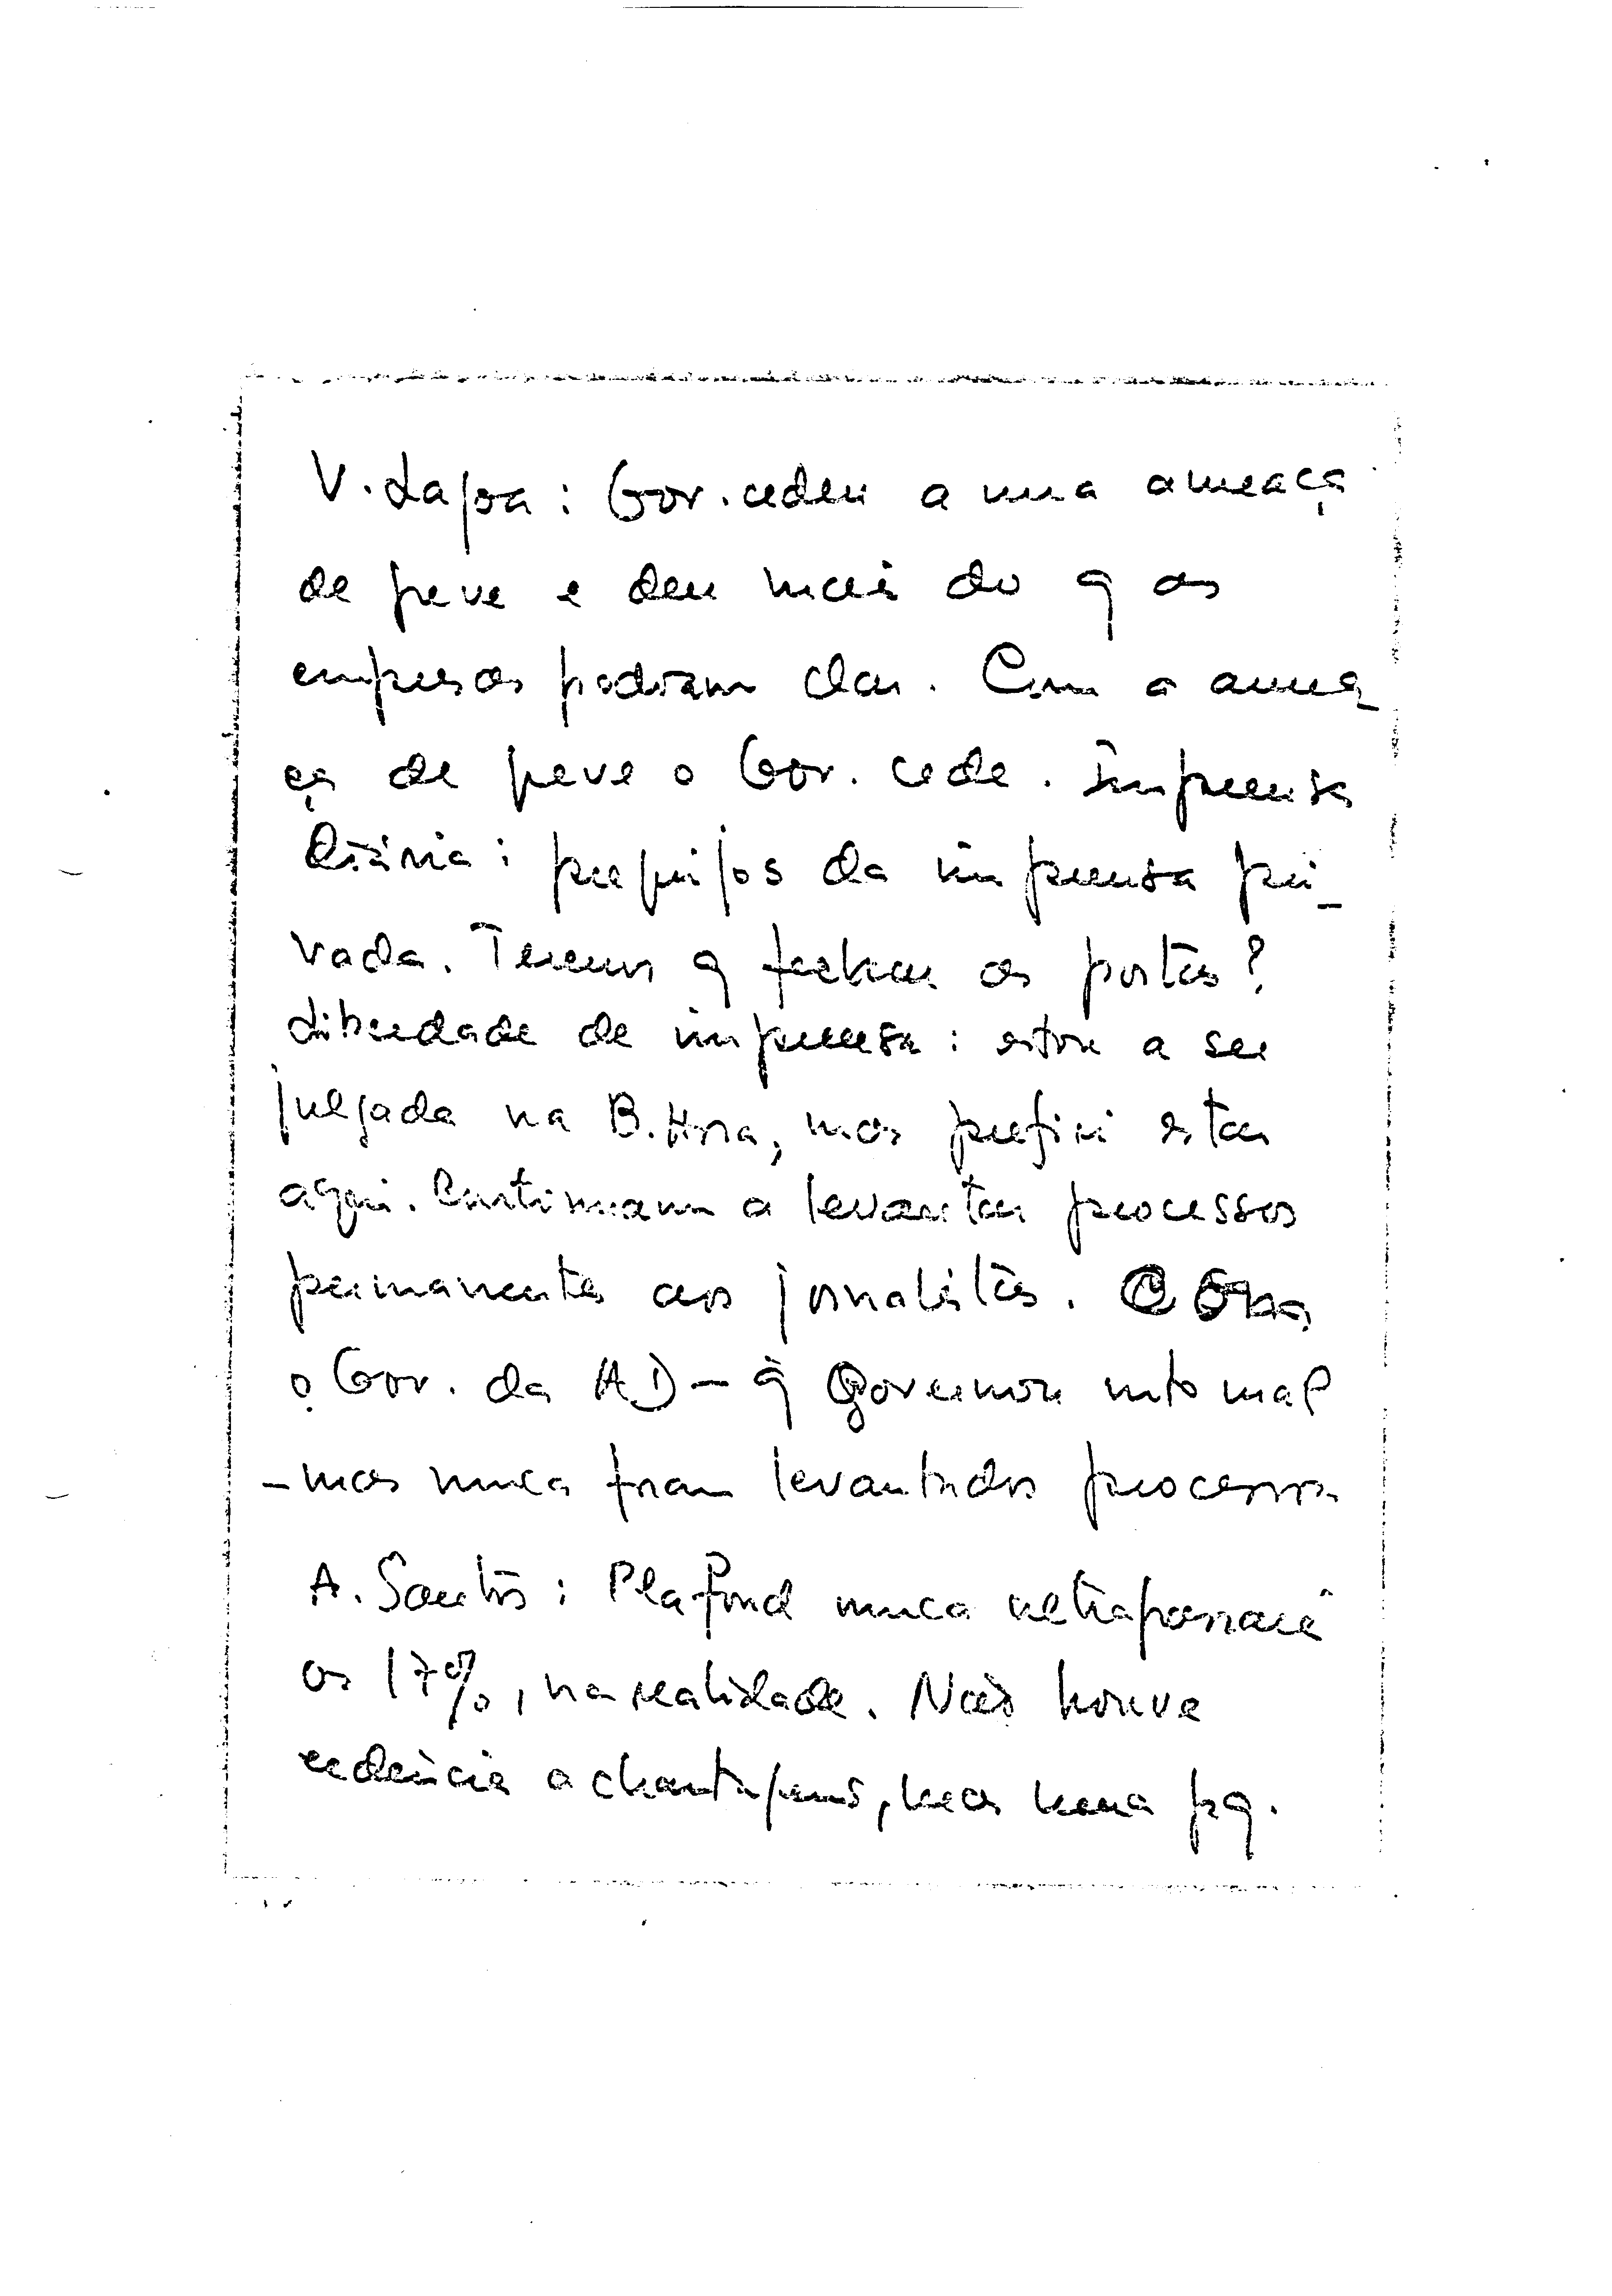 V. Lapa: Gov. cedeu a uma ameaça
de greve e deu mais do q as
empresas podiam dar. Com a amea_
ça de greve o Gov. cede. Imprensa
Diária: prejuízos da imprensa pri_
vada. Teremos q fechar as portas?
Liberdade de imprensa: estou a ser
julgada na B. Hora, mas preferi estar
aqui. Continuam a levantar processos
permanentes aos jornalistas. Ora,
o Gov. da AD - q Governou mto mal
- mas nunca foram levantados processos
A. Santos: Plafond nunca ultrapassará
os 17%, na realidade. Não houve
cedência a chantagens, mas houve pq.